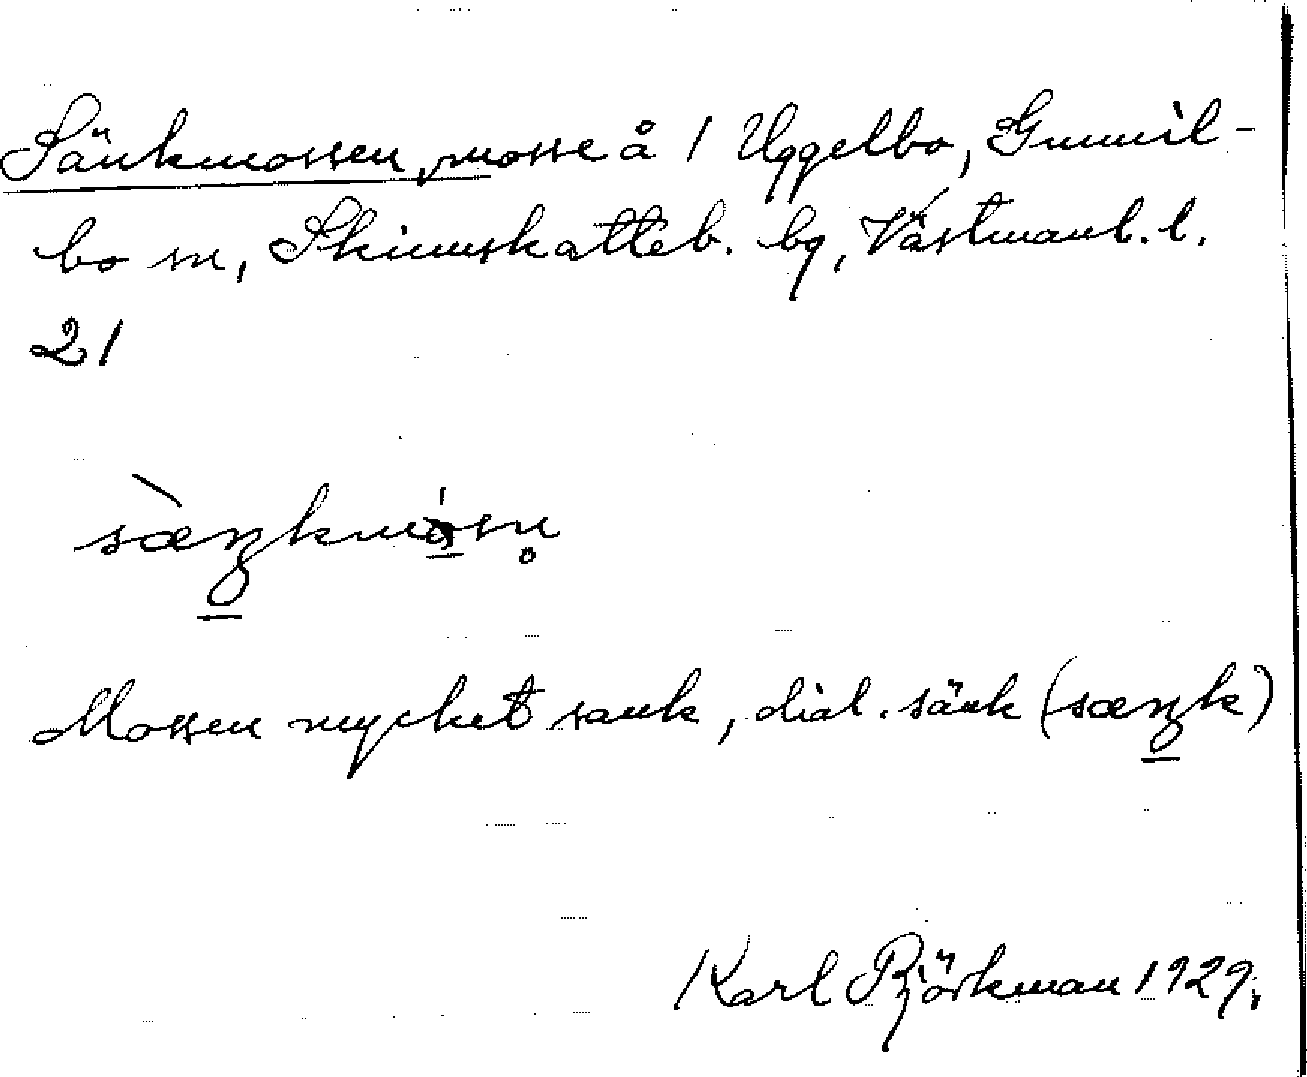 Sänkmossen, mosse å 1 Uggelbo, Gunnil-
bo sn, Skinnskatteb. bg, Västmanl. l.
21
sæ̀ŋkmósn̥
Mossen mycket sank, dial. sänk (sæŋk)
Karl Björkman 1929.